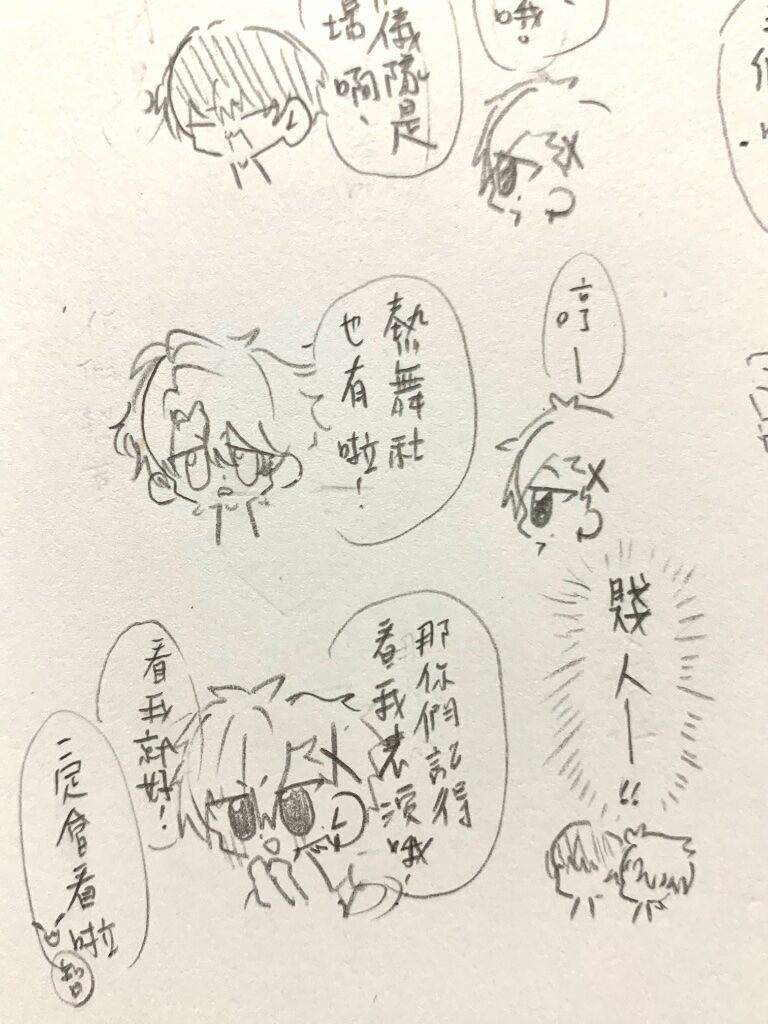 哦。
儀隊是
場啊、
哼—
熱舞社
也有啦！
賤人—!!
那你們記得
看我表演哦！
看我就好！
一定會看啦
智